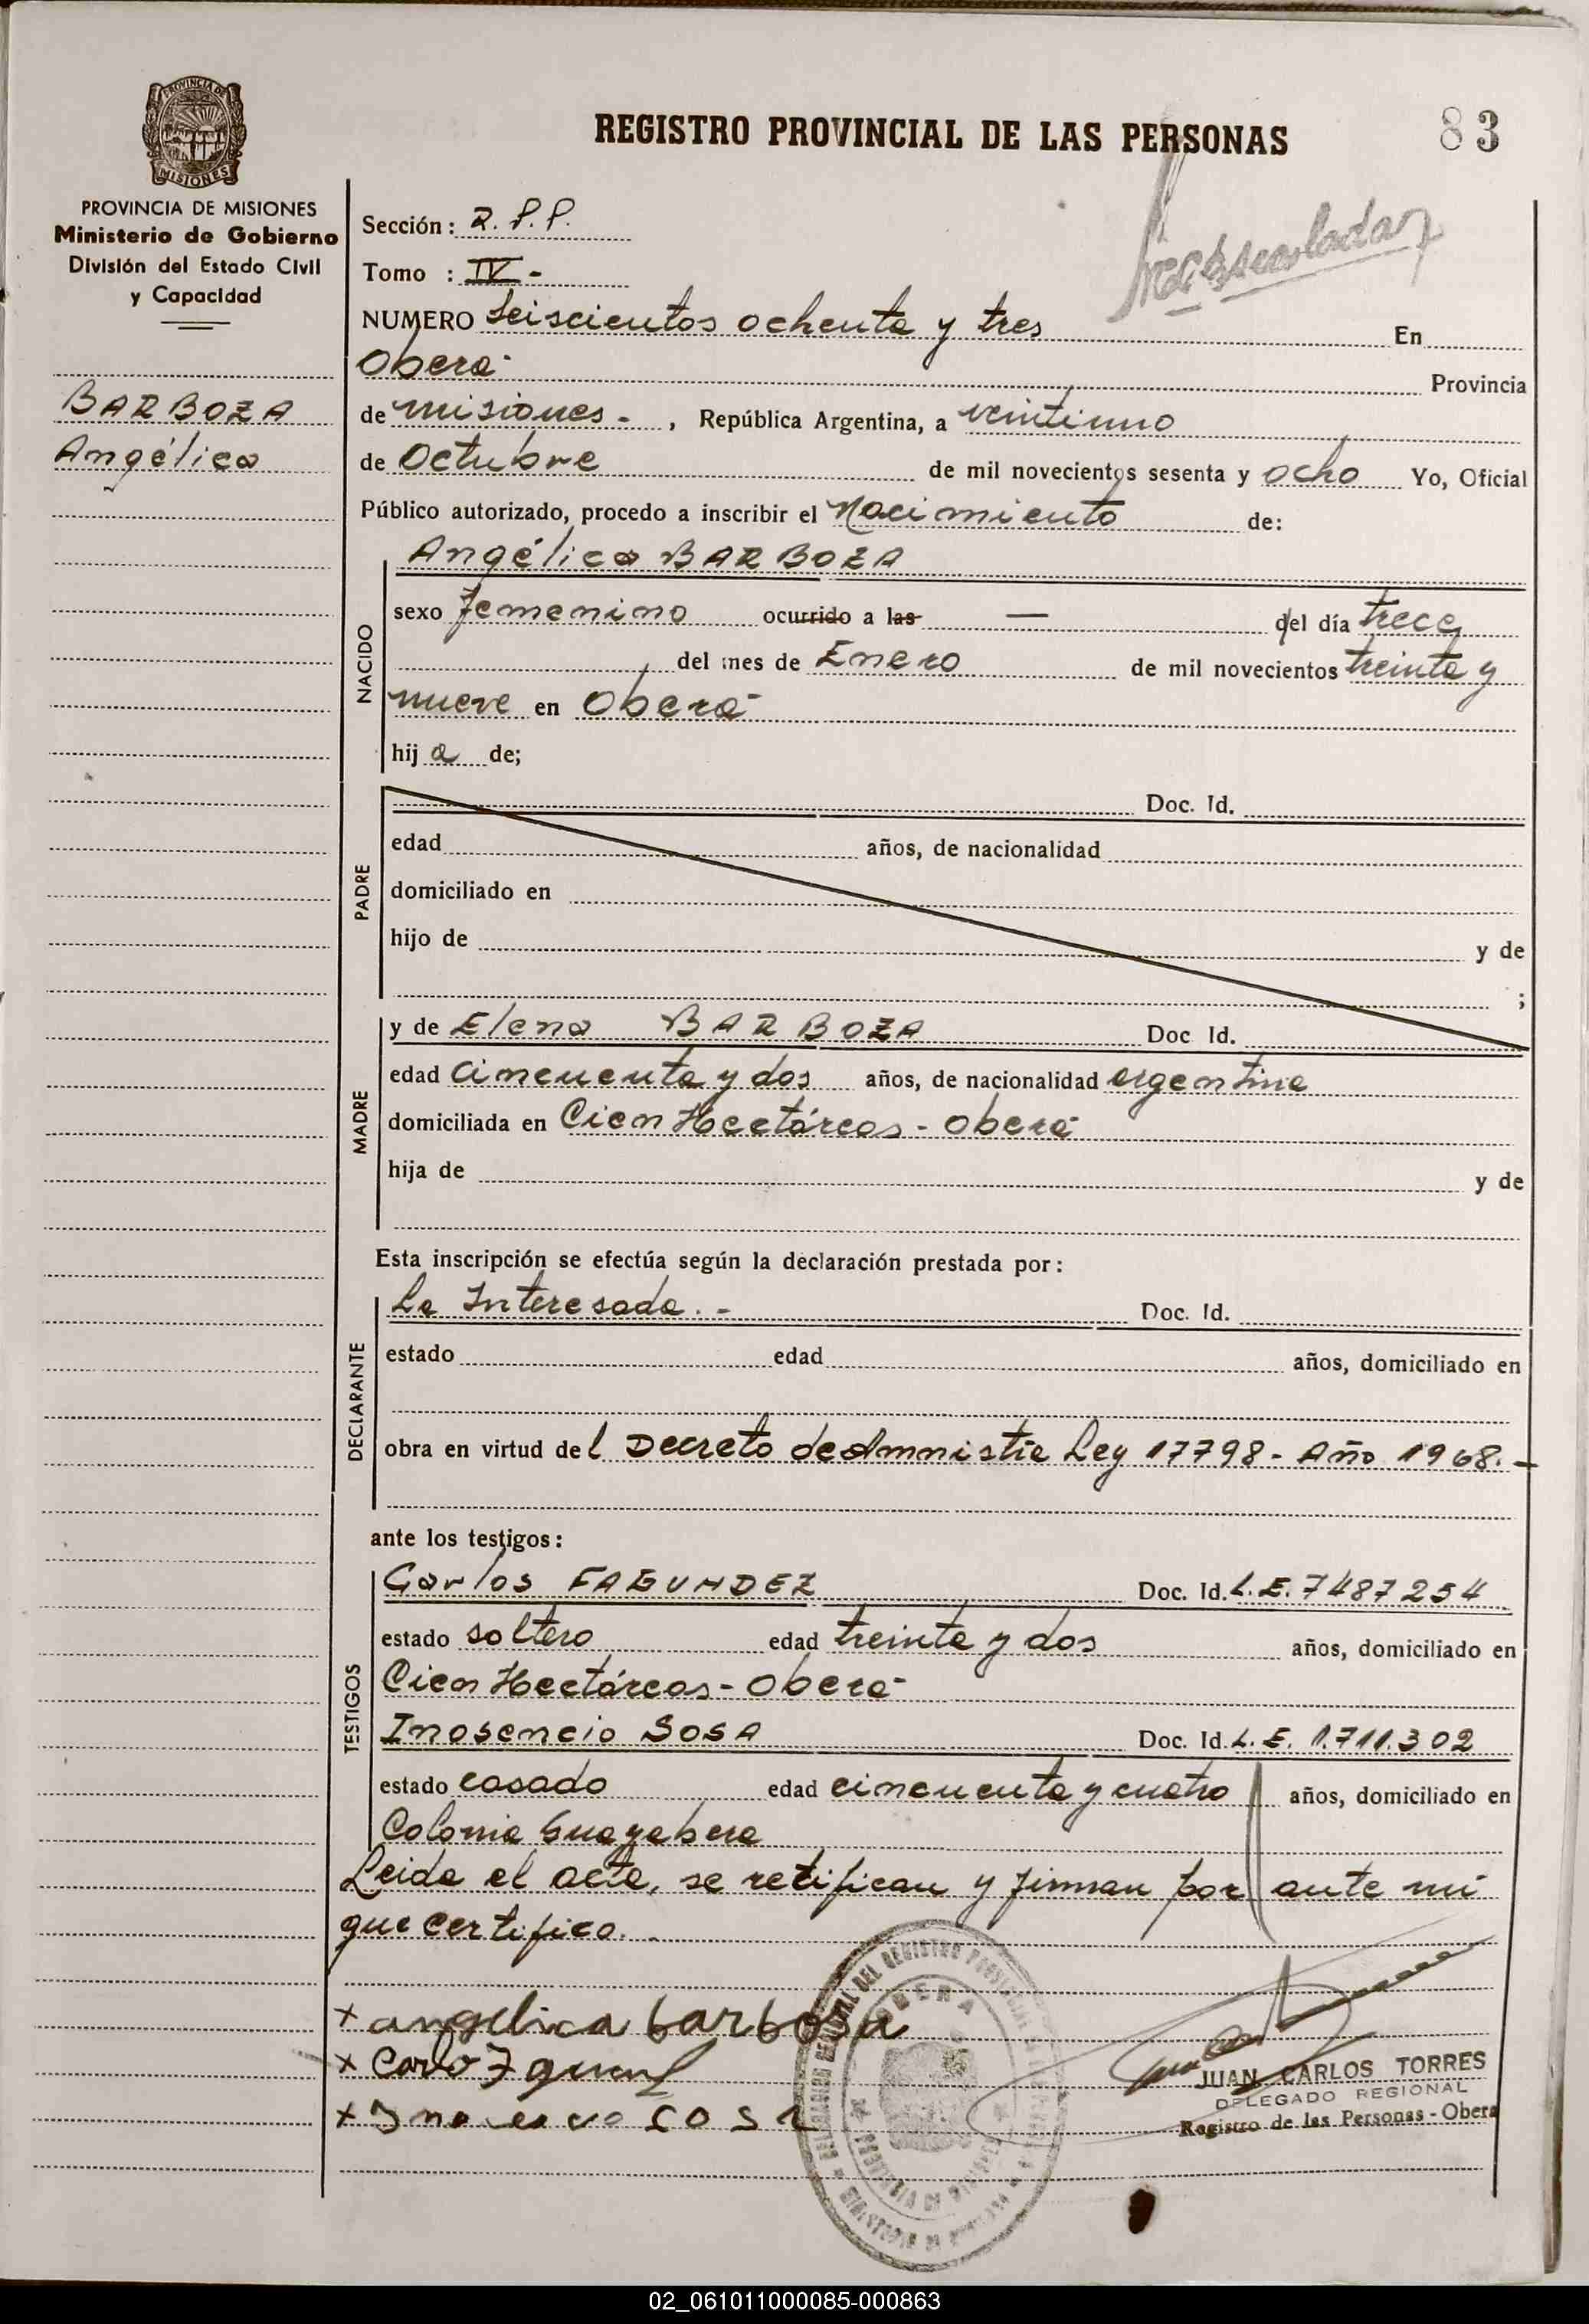 REGISTRO PROVINCIAL DE LAS PERSONAS
83
PROVINCIA DE MISIONES
PROVINCIA DE MISIONES
Ministerio de Gobierno
División del Estado Civil
y Capacidad
BARBOZA
Angélica
Sección: R.P.P.
Tomo : IV-
NUMERO Seiscientos ochenta y tres En
Oberá Provincia
de Misiones - , República Argentina, a veintiuno
de Octubre de mil novecientos sesenta y ocho Yo, Oficial
Público autorizado, procedo a inscribir el Nacimiento de:
NACIDO
Angélica BARBOZA
sexo femenino ocurrido a las — del día trece
del mes de Enero de mil novecientos treinta y
nueve en Oberá
hij a de;
PADRE
Doc. Id.
edad años, de nacionalidad
domiciliado en
hijo de y de
;
MADRE
y de Elena BARBOZA Doc Id.
edad Cincuenta y dos años, de nacionalidad argentina
domiciliada en Cien Hectáreas - Oberá
hija de y de
Esta inscripción se efectúa según la declaración prestada por:
DECLARANTE
La Interesada. - Doc. Id.
estado edad años, domiciliado en
obra en virtud del Decreto de Amnistía Ley 17798 - Año 1968. -
ante los testigos:
TESTIGOS
Carlos FAGUNDEZ Doc. Id. L.E. 7487254
estado soltero edad treinta y dos años, domiciliado en
Cien Hectáreas - Oberá
Inosencio SOSA Doc. Id. L.E. 1.711.302
estado casado edad cincuenta y cuatro años, domiciliado en
Colonia Guayabera
Leida el acta, se ratifican y firman por ante mi
que certifico.
x angelica barbosa
x
x sosa
OBERA
JUAN CARLOS TORRES
DELEGADO REGIONAL
Registro de las Personas - Obera
02_061011000085-000863